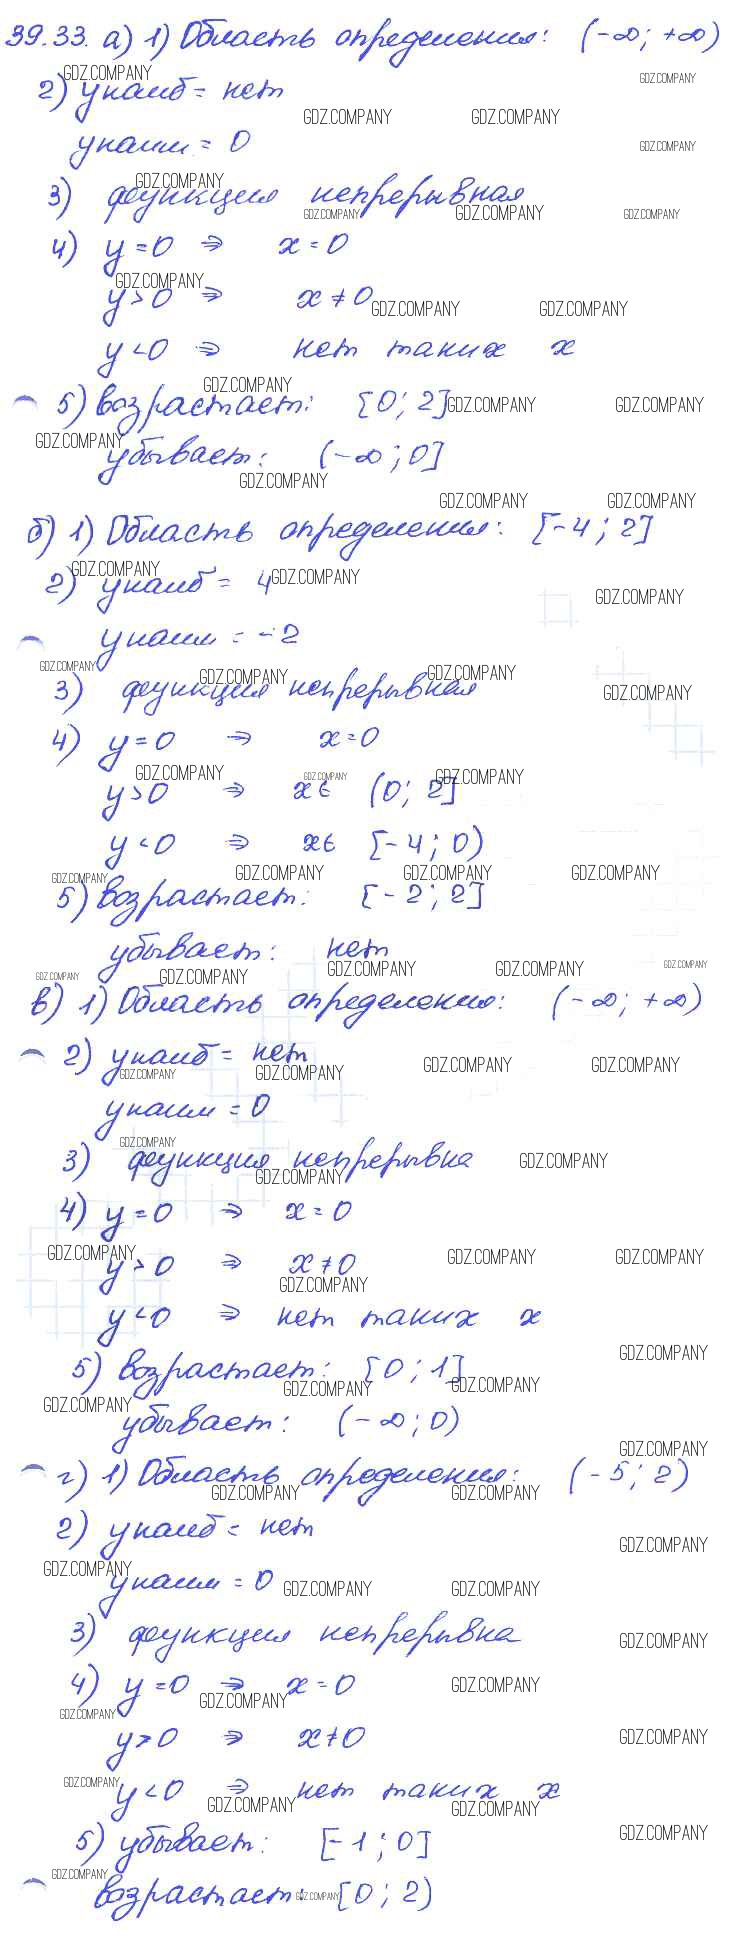 39.33. а) 1) Область определения: (-∞; +∞)
GDZ.COMPANY GDZ.COMPANY
2) yнаиб = нет
GDZ.COMPANY GDZ.COMPANY
yнаим = 0 GDZ.COMPANY
GDZ.COMPANY
3) функция непрерывная
GDZ.COMPANY GDZ.COMPANY GDZ.COMPANY
4) y=0 ⇒ x=0
GDZ.COMPANY
y>0 ⇒ x≠0 GDZ.COMPANY GDZ.COMPANY
y<0 ⇒ нет таких x
GDZ.COMPANY
5) возрастает: [0; 2] GDZ.COMPANY GDZ.COMPANY
GDZ.COMPANY
убывает: (-∞; 0]
GDZ.COMPANY
GDZ.COMPANY GDZ.COMPANY
б) 1) Область определения: [-4; 2]
GDZ.COMPANY
2) yнаиб = 4 GDZ.COMPANY
GDZ.COMPANY
yнаим = -2
GDZ.COMPANY GDZ.COMPANY GDZ.COMPANY
3) функция непрерывная GDZ.COMPANY
4) y=0 ⇒ x=0
GDZ.COMPANY GDZ.COMPANY GDZ.COMPANY
y>0 ⇒ x∈ (0; 2]
y<0 ⇒ x∈ [-4; 0)
GDZ.COMPANY GDZ.COMPANY GDZ.COMPANY GDZ.COMPANY
5) возрастает: [-2; 2]
убывает: нет
GDZ.COMPANY GDZ.COMPANY GDZ.COMPANY GDZ.COMPANY GDZ.COMPANY
в) 1) Область определения: (-∞; +∞)
2) yнаиб = нет
GDZ.COMPANY GDZ.COMPANY GDZ.COMPANY GDZ.COMPANY
yнаим = 0
GDZ.COMPANY
3) функция непрерывна GDZ.COMPANY
GDZ.COMPANY
4) y=0 ⇒ x=0
GDZ.COMPANY GDZ.COMPANY GDZ.COMPANY
y>0 ⇒ x≠0
GDZ.COMPANY
y<0 ⇒ нет таких x
GDZ.COMPANY
5) возрастает: [0; 1]
GDZ.COMPANY GDZ.COMPANY GDZ.COMPANY
убывает: (-∞; 0)
GDZ.COMPANY
г) 1) Область определения: (-5; 2)
GDZ.COMPANY GDZ.COMPANY
2) yнаиб = нет
GDZ.COMPANY
GDZ.COMPANY
yнаим = 0 GDZ.COMPANY GDZ.COMPANY
3) функция непрерывна GDZ.COMPANY
4) y=0 ⇒ x=0 GDZ.COMPANY
GDZ.COMPANY GDZ.COMPANY
y>0 ⇒ x≠0 GDZ.COMPANY
GDZ.COMPANY
y<0 ⇒ нет таких x
GDZ.COMPANY GDZ.COMPANY
5) убывает: [-1; 0] GDZ.COMPANY
GDZ.COMPANY
возрастает: GDZ.COMPANY [0; 2)